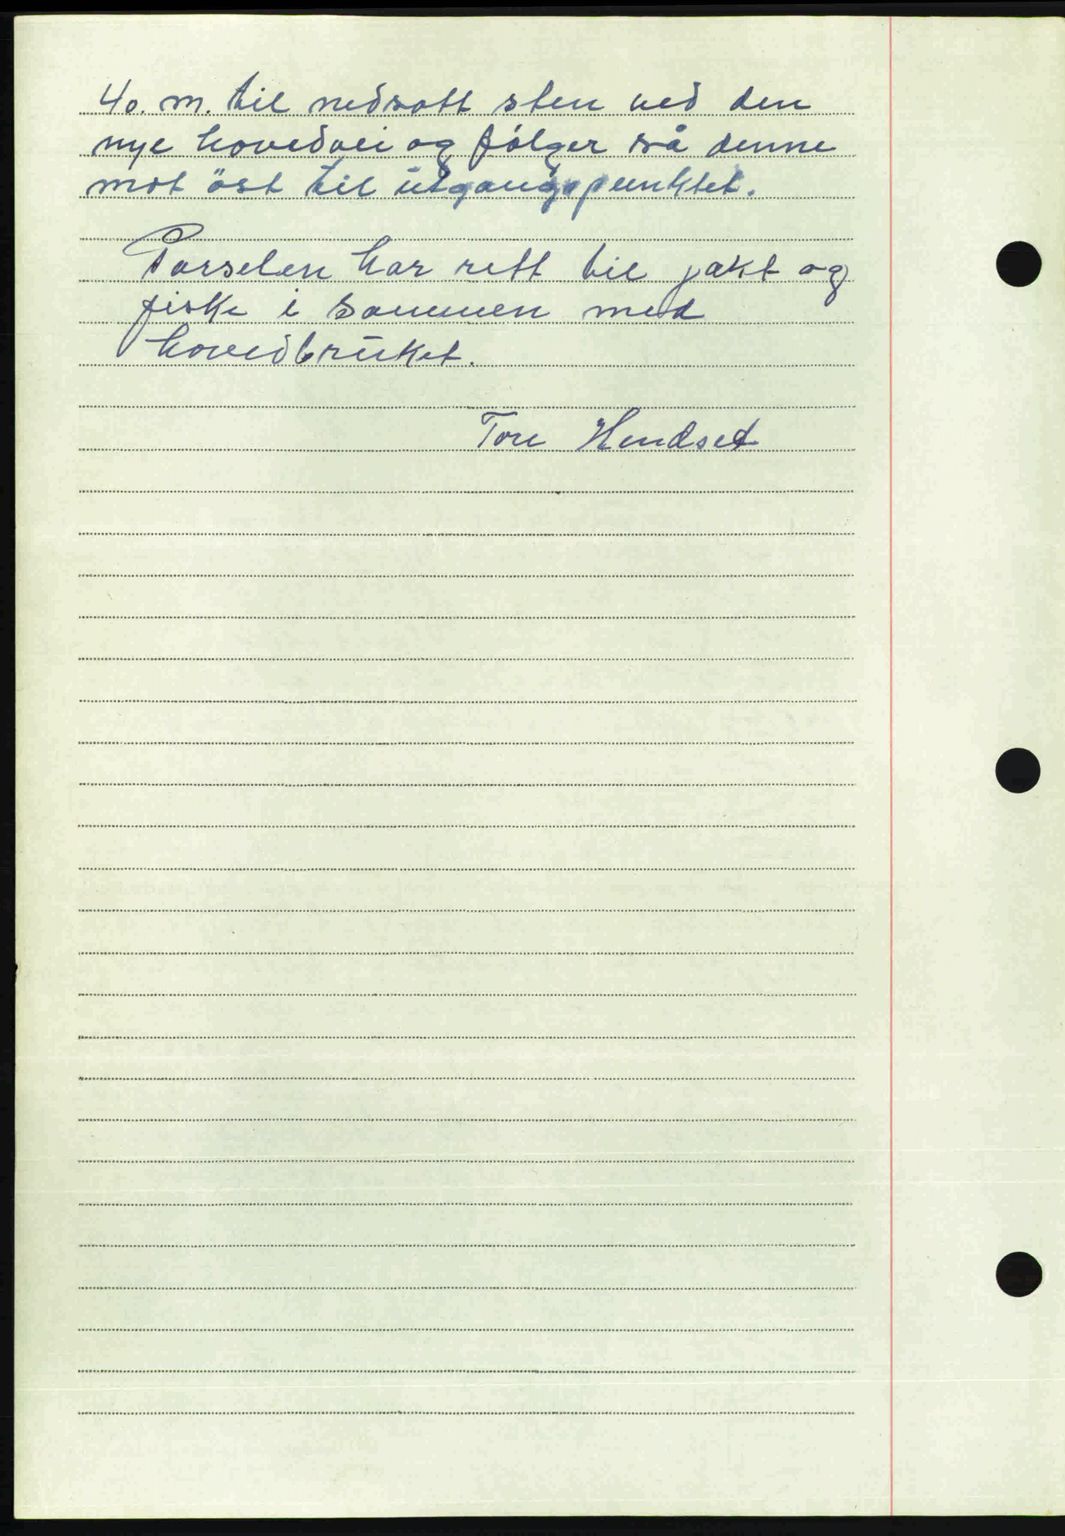 40. m. til nedsatt sten ved den
nye hovedvei og følger så denne
mot öst til utgangspunktet.
Parselen har rett til jakt og
fiske i sammen med
hovedbruket.
Tore Hendset